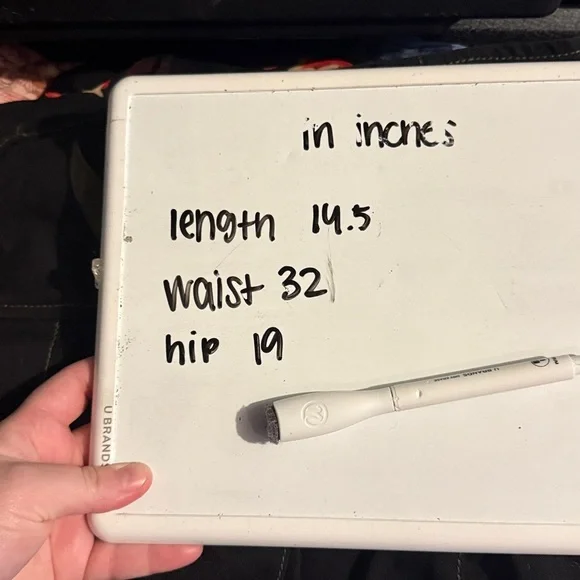 in inches
length 14.5
waist 32
hip 19
U BRANDS